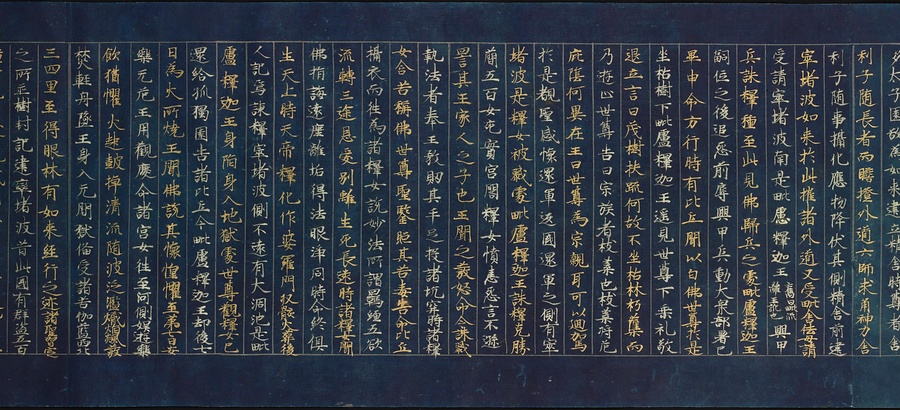 利子隨長者而瞻揆外道六師求角神力舍
利子隨事攝化應物降伏其側精舍前建
窣堵波如來於此摧諸外道又受毗舍佉母請
受請窣堵波南是毗盧釋迦王興甲
兵誅釋種至此見佛歸兵之處毗盧釋迦王
嗣位之後追怨前辱興甲兵動大衆部署已
畢申命方行時有比丘聞以白佛世尊於是
坐枯樹下毗盧釋迦王遙見世尊下乘礼敬
退立言曰茂樹扶疏何故不坐枯林朽蘖而
乃遊止世尊告曰宗族者枝葉也枝葉將危
庇蔭何異在王曰世尊爲宗親耳可以迴駕
於是覩聖感懷還軍返國還軍之側有窣
堵波是釋女被戮處毗盧釋迦王誅釋克勝
簡五百女充實宮闈釋女憤恚怨言不遜
詈其王家人之子也王聞之發怒命令誅戮
執法者奉王教刖其手足投諸坑穽時諸釋
女含苦稱佛世尊聖鑒照其苦毒告命比丘
攝衣而往爲諸釋女說妙法所謂羈纏五欲
流轉三途恩愛別離生死長遠時諸釋女聞
佛指誨遠塵離垢得法眼淨同時命終俱
生天上時天帝釋化作婆羅門收骸火葬後
人記焉誅釋窣堵波側不遠有大涸池是毗
盧釋迦王陷身入地獄處世尊觀釋女已
還給孤獨園告諸比丘今毗盧釋迦王却後七
日爲火所燒王聞佛記甚懷惶懼至第七日安
樂无危王用歡慶命諸宮女往至河側娛遊樂
飲猶懼火起鼓棹清流隨波泛濫熾焰飈發
焚輕舟墜王身入无間獄備受諸苦伽藍西北
三四里至得眼林有如來經行之迹諸聖習定
之所並樹封記建窣堵波昔此國有群盜五百